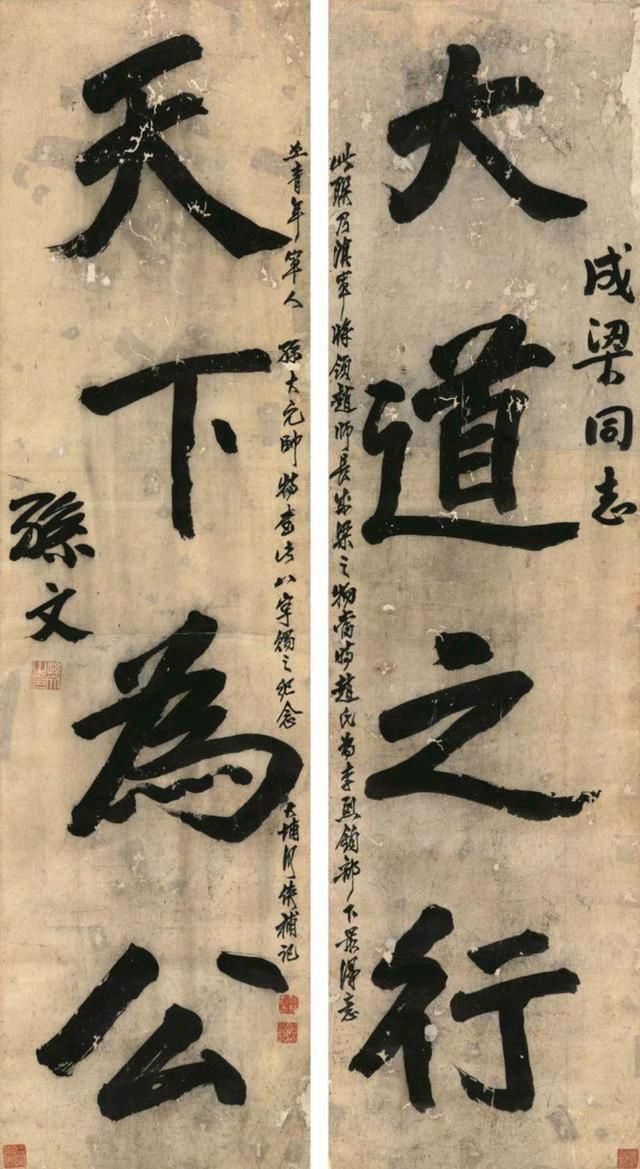 成梁同志
大道之行
此聯乃滇軍將領趙師長成梁之物當時趙氏為李烈鈞部下最得意
之青年軍人 孫大元帥特書此八字之紀念 大埔俠補記
天下為公
孫文